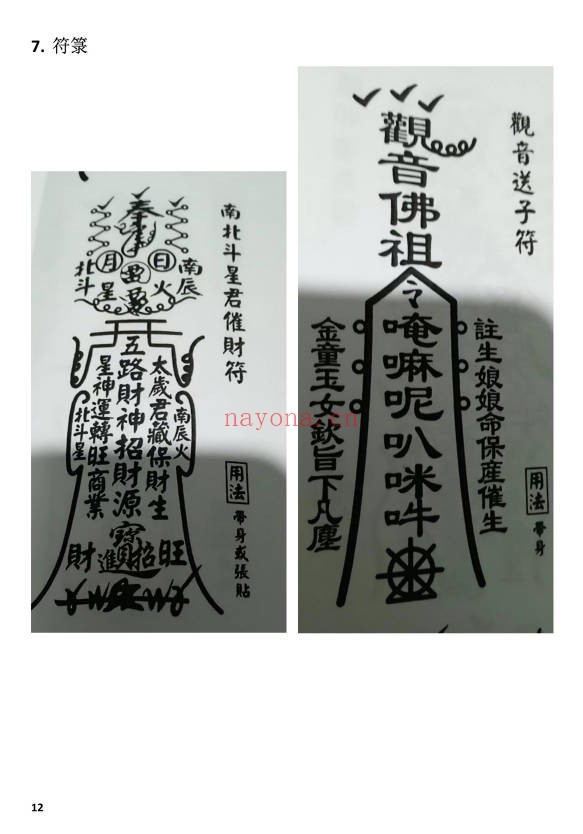 7. 符箓
南北斗星君催財符
奉
月
日
北斗
星
火
南辰
太歲君藏保財生
五路財神招財源
星神運轉旺商業
南辰火
北斗星
財
進
寶
招
旺
用法
帶身或張貼
觀音送子符
觀音佛祖
唵嘛呢叭咪吽
註生娘娘命保產催生
金童玉女欽旨下凡塵
用法
帶身
nayona.cn
12